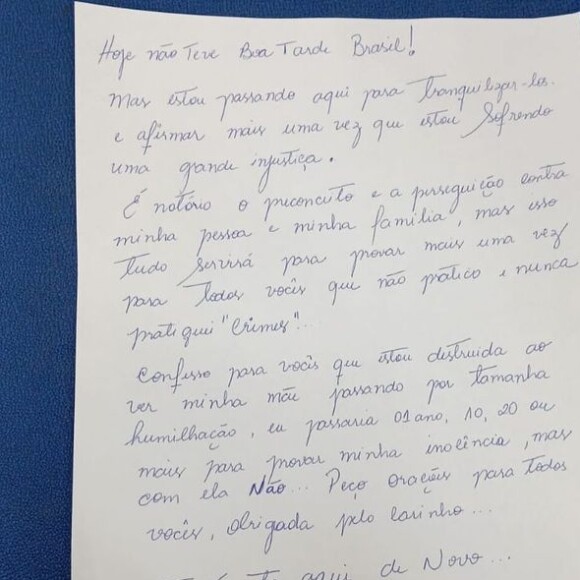 Hoje não Teve Boa Tarde Brasil!
Mas estou passando aqui para tranquilizar-los.
e afirmar mais uma vez que estou Sofrendo
uma grande injustiça.
É notório o preconceito e a perseguição contra
minha pessoa e minha família, mas isso
tudo servirá para provar mais uma vez
para todos vocês que não pratico e nunca
pratiquei "Crimes"...
Confesso para vocês que estou distruida ao
ver minha mãe passando por tamanha
humilhação, eu passaria 01 ano, 10, 20 ou
mais para provar minha inocência, mas
com ela Não... Peço orações para todos
vocês, obrigada pelo carinho...
aqui de Novo...